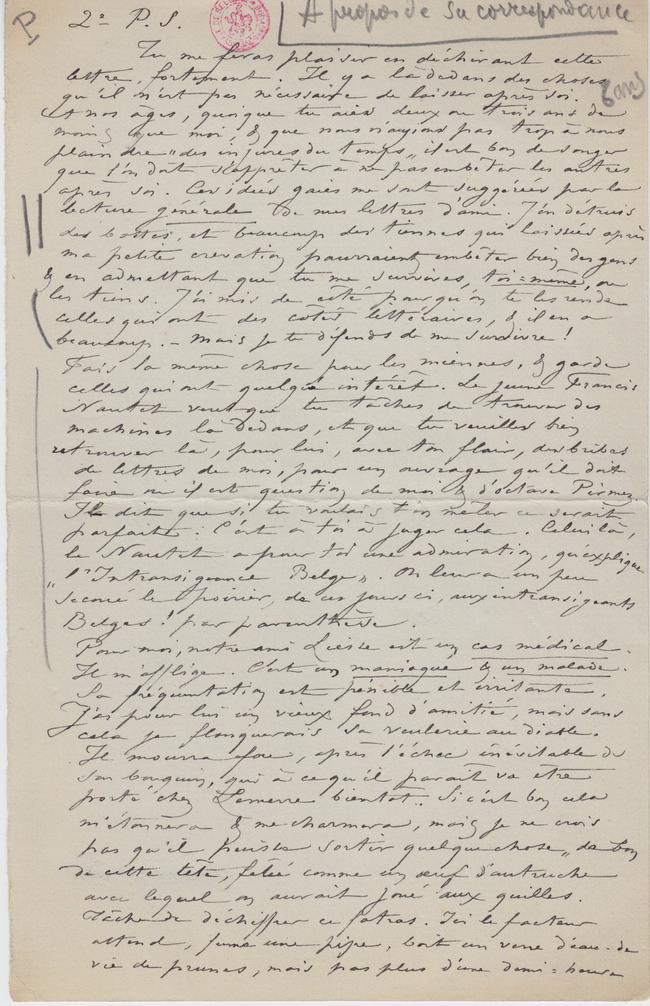 P
2º P.S.
A propos de sa correspondance
Tu me feras plaisir en déchirant cette
lettre, fortement. Il y a là dedans des choses
qu'il n'est pas nécessaire de laisser après soi.
A nos âges, quoique tu aies deux ou trois ans de
moins que moi, & que nous n'ayions pas trop à nous
plaindre „des injures du temps„ il est bon de songer
que l'on doit s'apprêter à ne pas embêter les autres
après soi. Ces idées gaies me sont suggérées par la
lecture générale de mes lettres d'ami. J'en détruis
des bottes, et beaucoup des tiennes qui laissées après
ma petite crevaison pourraient embêter bien des gens
& en admettant que tu me survives, toi=même, ou
les tiens. J'ai mis de côté pour qu'on te les rende
celles qui ont des cotés littéraires, & il en a
beaucoup. – Mais je te défends de me survivre!
Fais la même chose pour les miennes, & garde
celles qui ont quelque intérêt. Le jeune Francis
Nautet veut que tu tâches de trouver des
machines là dedans, et que tu veuilles bien
retrouver là, pour lui, avec ton flair, des bribes
de lettres de moi, pour un ouvrage qu'il doit
faire où il est question de moi & d'Octave Pirmez.
Il dit que si tu voulais t'en mêler ce serait
parfait: C'est à toi à juger cela. Celui là,
le Nautet a pour toi une admiration, qu'explique
„l'Intransigeance Belge„. On leur a un peu
secoué le poirier, de ces jours ci, aux intransigeants
Belges! par parenthèse.
Pour moi, notre ami Liesse est un cas médical.
Il m'afflige. C'est un maniaque & un malade.
Sa fréquentation est pénible et irritante.
J'ai pour lui un vieux fond d'amitié, mais sans
cela je flanquerais sa veulerie au diable.
Il mourra fou, après l'échec inévitable de
son bouquin, qui à ce qu'il paraît va être
porté chez Lemerre bientot. Si c'est bon cela
m'étonnera & me charmera, mais je ne crois
pas qu'il puisse sortir quelque chose „de bon
de cette tête, fêlée comme un œuf d'autruche
avec lequel on aurait joué aux quilles.
Tâche de déchiffrer ce fatras. Ici le facteur
attend, fume une pipe, boit un verre d'eau-de
vie de prunes, mais pas plus d'une demi=heure